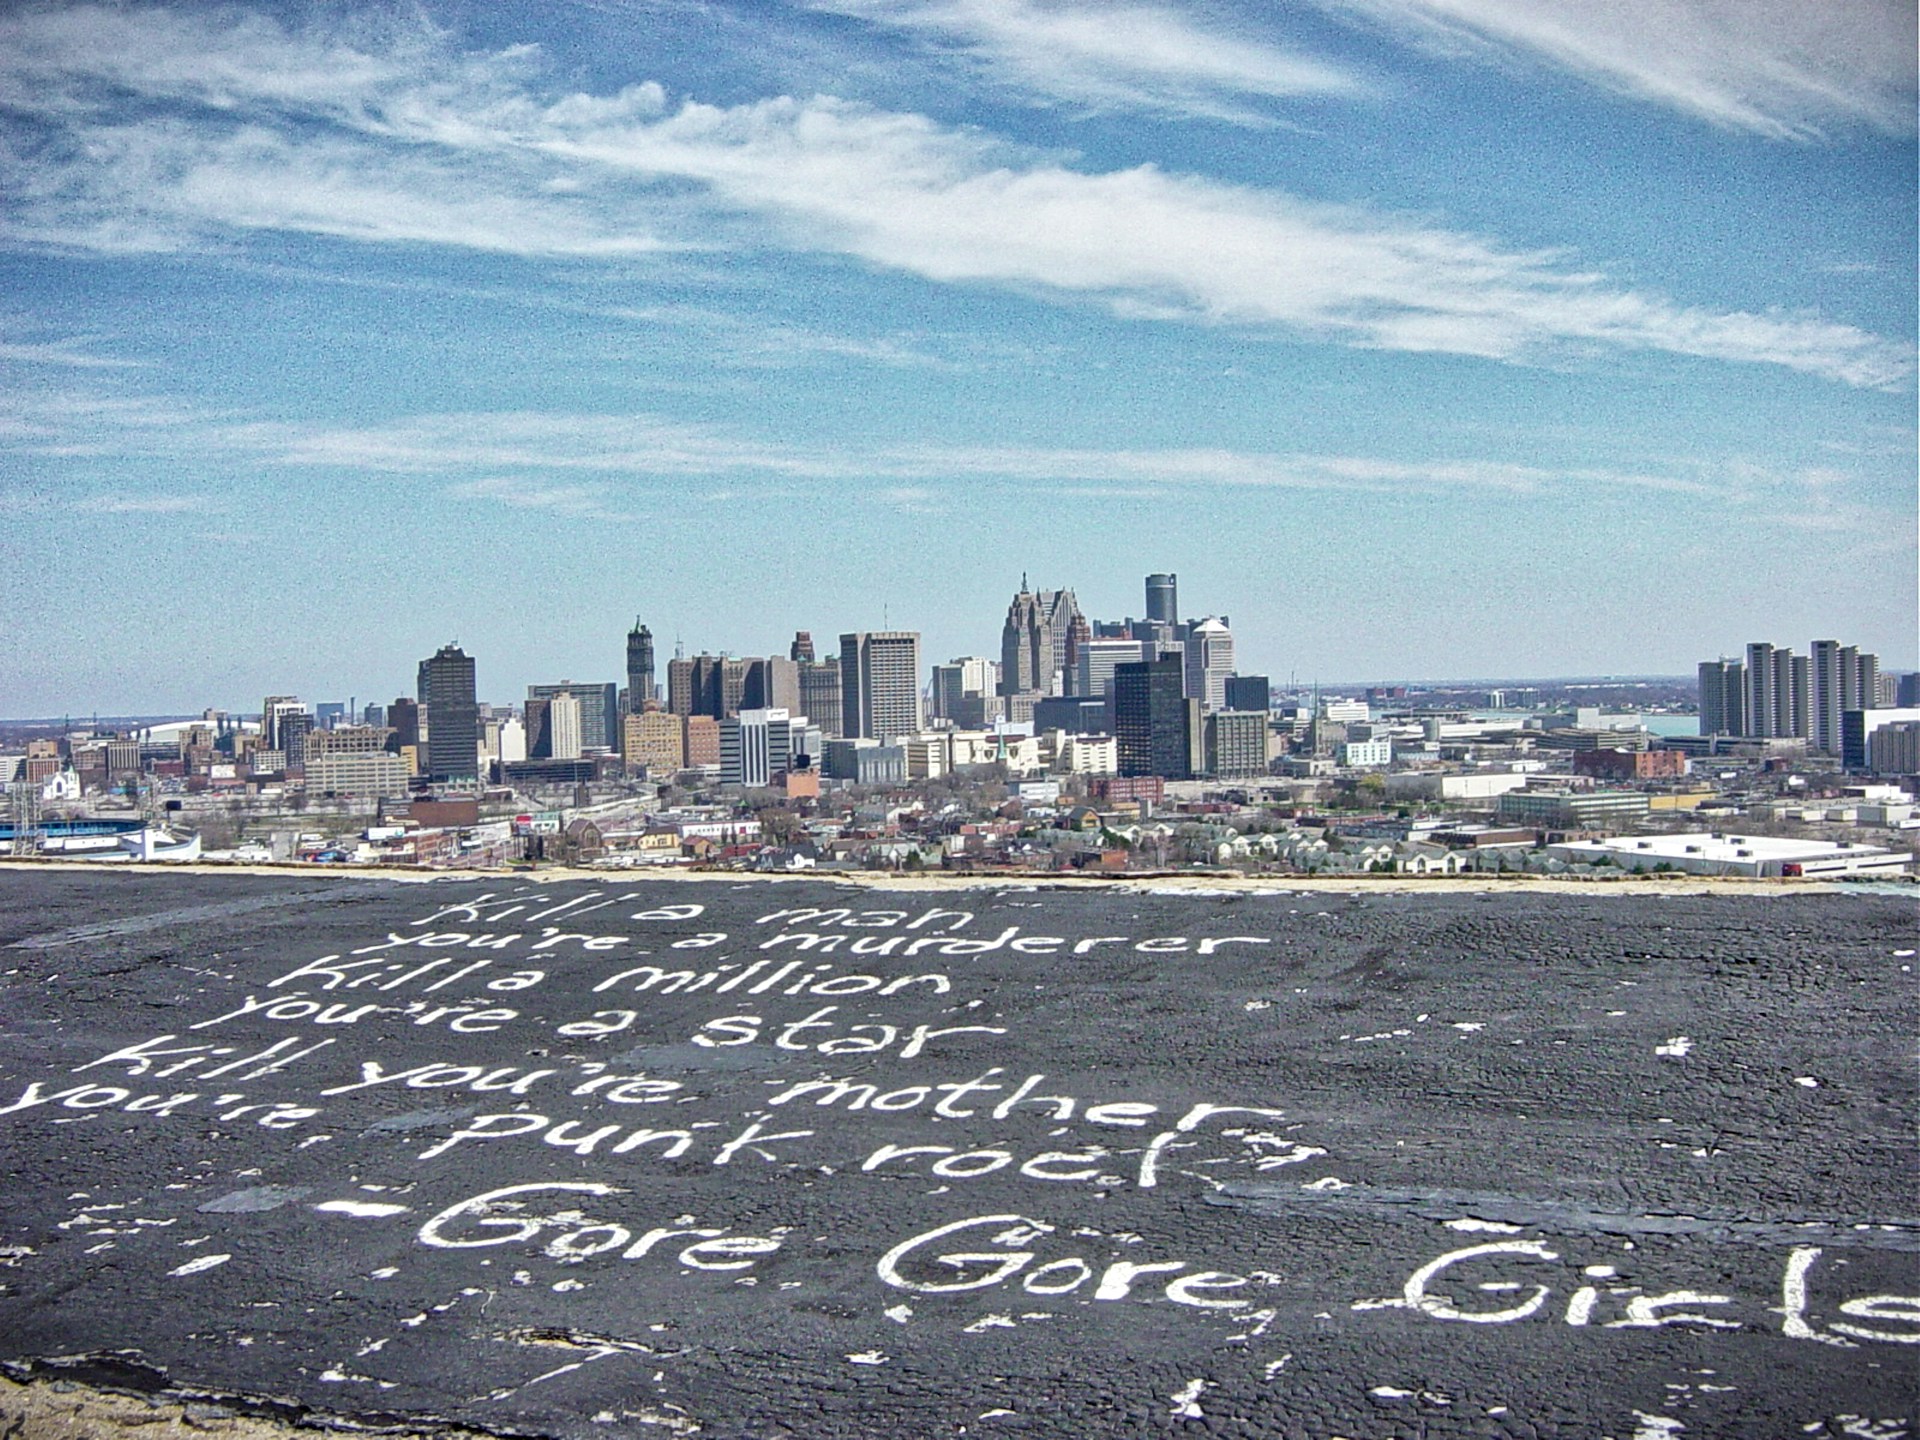 Kill a man
you're a murderer
Kill a million
you're a star
Kill you're mother
you're punk rock
- Gore Gore Girls